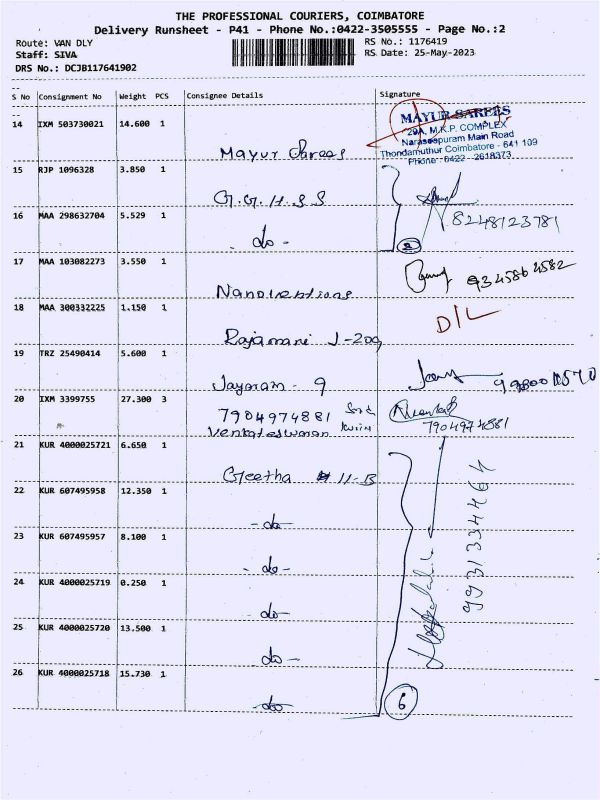 THE PROFESSIONAL COURIERS, COIMBATORE
Delivery Runsheet - P41 - Phone No.:0422-3505555 - Page No.:2
Route: VAN DLY RS No.: 1176419
Staff: SIVA RS Date: 25-May-2023
DRS No.: DCJB117641902
S No Consignment No Weight PCS Consignee Details Signature
14 IXM 503730021 14.600 1 Mayur Sarees
MAYUR SAREES
29A, M.K.P. COMPLEX
Naraseepuram Main Road
Thondamuthur Coimbatore - 641 109
Phone : 0422 - 2618373
15 RJP 1096328 3.850 1 G.G.H.S.S
16 MAA 298632704 5.529 1 - do - 2 8248123781
17 MAA 103082273 3.550 1 Nanovations 934586 4582
18 MAA 300332225 1.150 1 Rajamani J-209 D/L
19 TRZ 25490414 5.600 1 Jayaram - 9
20 IXM 3399755 27.300 3 7904974881
Venkateswaran 7904974881
21 KUR 4000025721 6.650 1 Geetha 11-B
22 KUR 607495958 12.350 1 - do -
23 KUR 607495957 8.100 1 - do -
24 KUR 4000025719 0.250 1 - do -
25 KUR 4000025720 13.500 1 - do -
26 KUR 4000025718 15.730 1 - do - 6